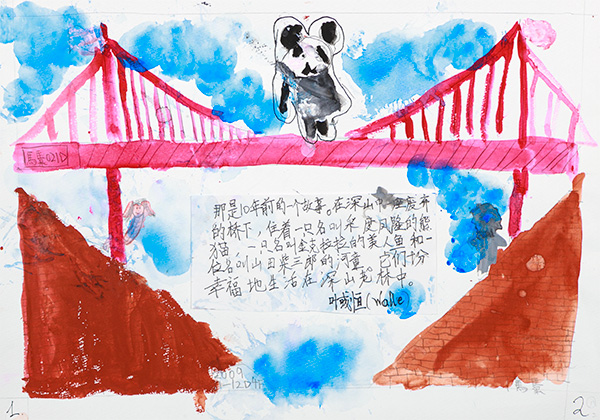 那是10年前的一个故事。在深山中一座废弃
的桥下，住着一只名叫禾度风隆的熊
猫，一只名叫金克拉拉的美人鱼和一
位名叫山田柴三郎的河童。它们十分
幸福地生活在深山老林中。
(Walle)
2009
1
2